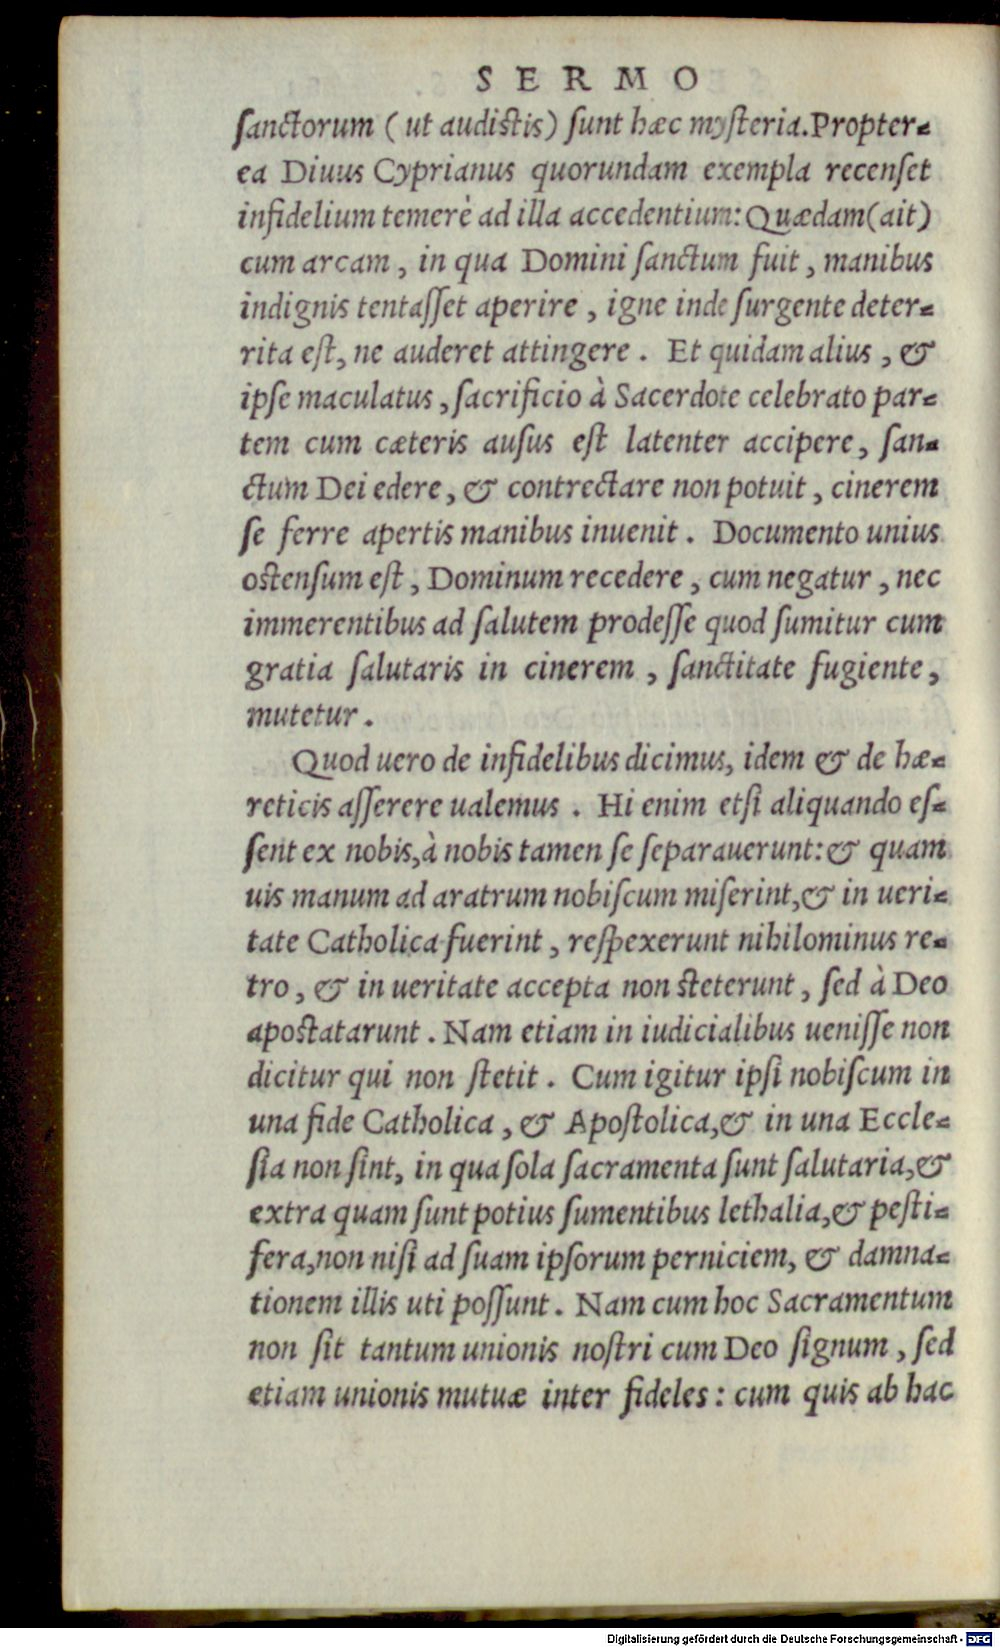 SERMO
ſanctorum (ut audiſtis) ſunt hæc myſteria. Propter-
ea Diuus Cyprianus quorundam exempla recenſet
infidelium temerè ad illa accedentium: Quædam (ait)
cum arcam, in qua Domini ſanctum fuit, manibus
indignis tentaſſet aperire, igne inde ſurgente deter-
rita eſt, ne auderet attingere. Et quidam alius, &
ipſe maculatus, ſacrificio à Sacerdote celebrato par-
tem cum cæteris auſus eſt latenter accipere, ſan-
ctum Dei edere, & contrectare non potuit, cinerem
ſe ferre apertis manibus inuenit. Documento unius
oſtenſum eſt, Dominum recedere, cum negatur, nec
immerentibus ad ſalutem prodeſſe quod ſumitur cum
gratia ſalutaris in cinerem, ſanctitate fugiente,
mutetur.
Quod uero de infidelibus dicimus, idem & de hæ-
reticis aſſerere ualemus. Hi enim etſi aliquando eſ-
ſent ex nobis, à nobis tamen ſe ſeparauerunt: & quam
uis manum ad aratrum nobiſcum miſerint, & in ueri-
tate Catholica fuerint, reſpexerunt nihilominus re-
tro, & in ueritate accepta non ſteterunt, ſed à Deo
apoſtatarunt. Nam etiam in iudicialibus ueniſſe non
dicitur qui non ſtetit. Cum igitur ipſi nobiſcum in
una fide Catholica, & Apoſtolica, & in una Eccle-
ſia non ſint, in qua ſola ſacramenta ſunt ſalutaria, &
extra quam ſunt potius ſumentibus lethalia, & peſti-
fera, non niſi ad ſuam ipſorum perniciem, & damna-
tionem illis uti poſſunt. Nam cum hoc Sacramentum
non ſit tantum unionis noſtri cum Deo ſignum, ſed
etiam unionis mutuæ inter fideles: cum quis ab hac
Digitalisierung gefördert durch die Deutsche Forschungsgemeinschaft - DFG